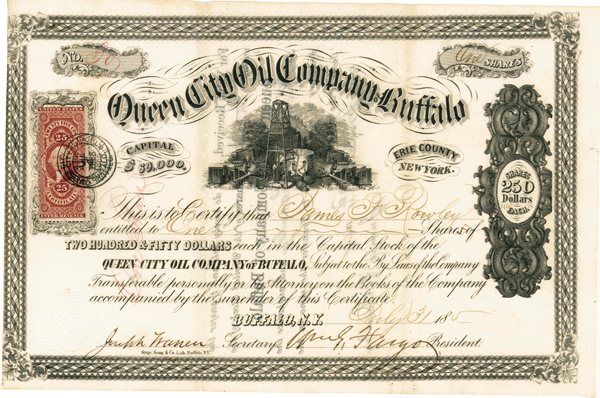 No. 50
One SHARES
Queen City Oil Company of Buffalo
CAPITAL
$ 50,000.
ERIE COUNTY
NEW YORK.
25
25
CERTIFICATE
INTER. REVENUE
SHARES
250
Dollars
EACH.
This is to Certify that James N Rowley
entitled to One Shares of
TWO HUNDRED & FIFTY DOLLARS each in the Capital Stock of the
QUEEN CITY OIL COMPANY OF BUFFALO, Subject to the By Laws of the Company
Transferable personally or by Attorney on the Books of the Company
accompanied by the surrender of this Certificate.
BUFFALO, N.Y. July 31 1865
Joseph Warren Secretary Wm G. Fargo President.
Sage Sons & Co. Lith. Buffalo N.Y.